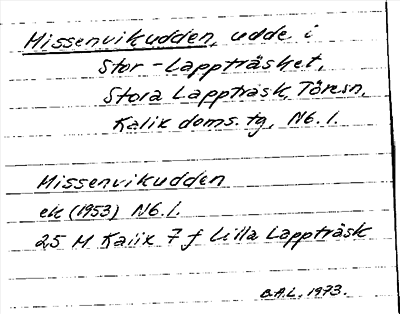 Missenvikudden, udde i
Stor-Lappträsket,
Stora Lappträsk, Töresn,
Kalix doms. tg, Nb. l.
Missenvikudden
ek (1953) Nb. l.
25 M Kalix 7 f Lilla Lappträsk
B.A.L. 1973.